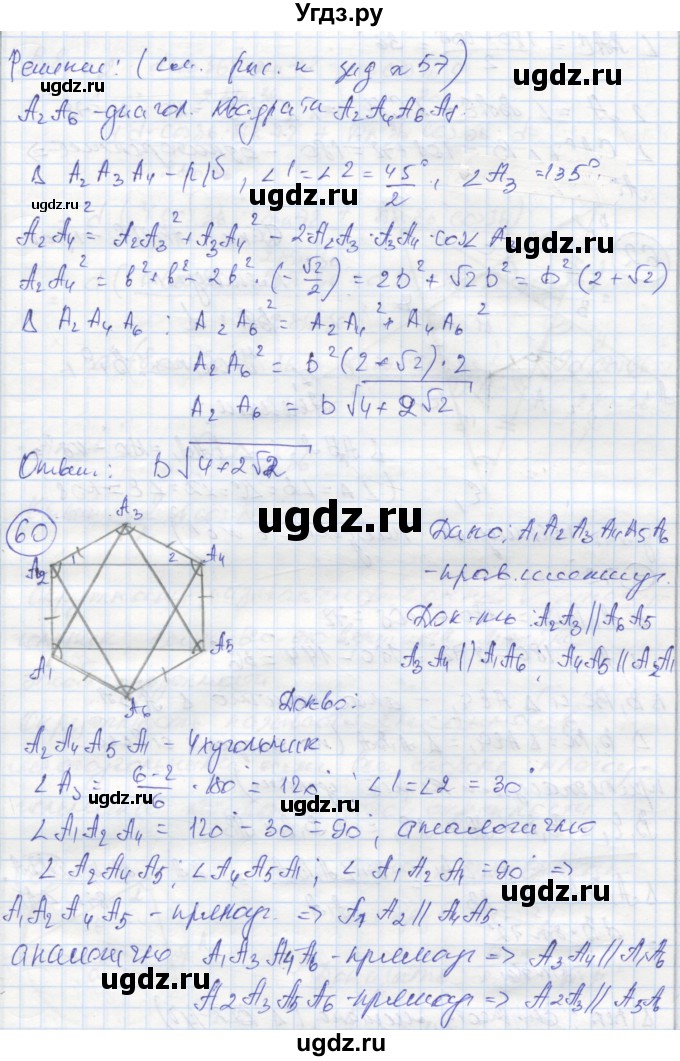 Угдз.ру
Решение: (см. рис. к зад. 57)
ugdz.ru ugdz.ru
A₂A₆ - диагол. квадрата A₂A₄A₆A₈.
В A₂A₃A₄ - р/б, ∠1 = ∠2 = 45°/2, ∠A₃ = 135°.
ugdz.ru ugdz.ru
A₂A₄² = A₂A₃² + A₃A₄² - 2·A₂A₃·A₃A₄·cos∠A₃
A₂A₄² = b² + b² - 2b²·(-√2/2) = 2b² + √2b² = b²(2+√2)
В A₂A₄A₆: A₂A₆² = A₂A₄² + A₄A₆²
ugdz.ru
A₂A₆² = b²(2+√2)·2
ugdz.ru
A₂A₆ = b√(4+2√2)
Ответ: b√(4+2√2)
ugdz.ru
60
A₃
A₂
1
2
A₄
A₁
A₅
A₆
Дано: A₁A₂A₃A₄A₅A₆
- прав. шестиуг.
ugdz.ru
Док-ть: A₂A₃ || A₆A₅
A₃A₄ || A₁A₆; A₄A₅ || A₂A₁
ugdz.ru
Док-во:
A₂A₄A₅A₁ - 4хугольник
∠A₃ = (6-2)/6 · 180° = 120°; ∠1 = ∠2 = 30°
ugdz.ru ugdz.ru
∠A₁A₂A₄ = 120° - 30 = 90°, аналогично
∠A₂A₄A₅; ∠A₄A₅A₁; ∠A₁A₂A₄ = 90° =>
ugdz.ru ugdz.ru
A₁A₂A₄A₅ - прямоуг. => A₁A₂ || A₄A₅.
аналогично A₁A₃A₄A₆ - прямоуг => A₃A₄ || A₁A₆
ugdz.ru
A₂A₃A₅A₆ - прямоуг => A₂A₃ || A₅A₆
ugdz.ru